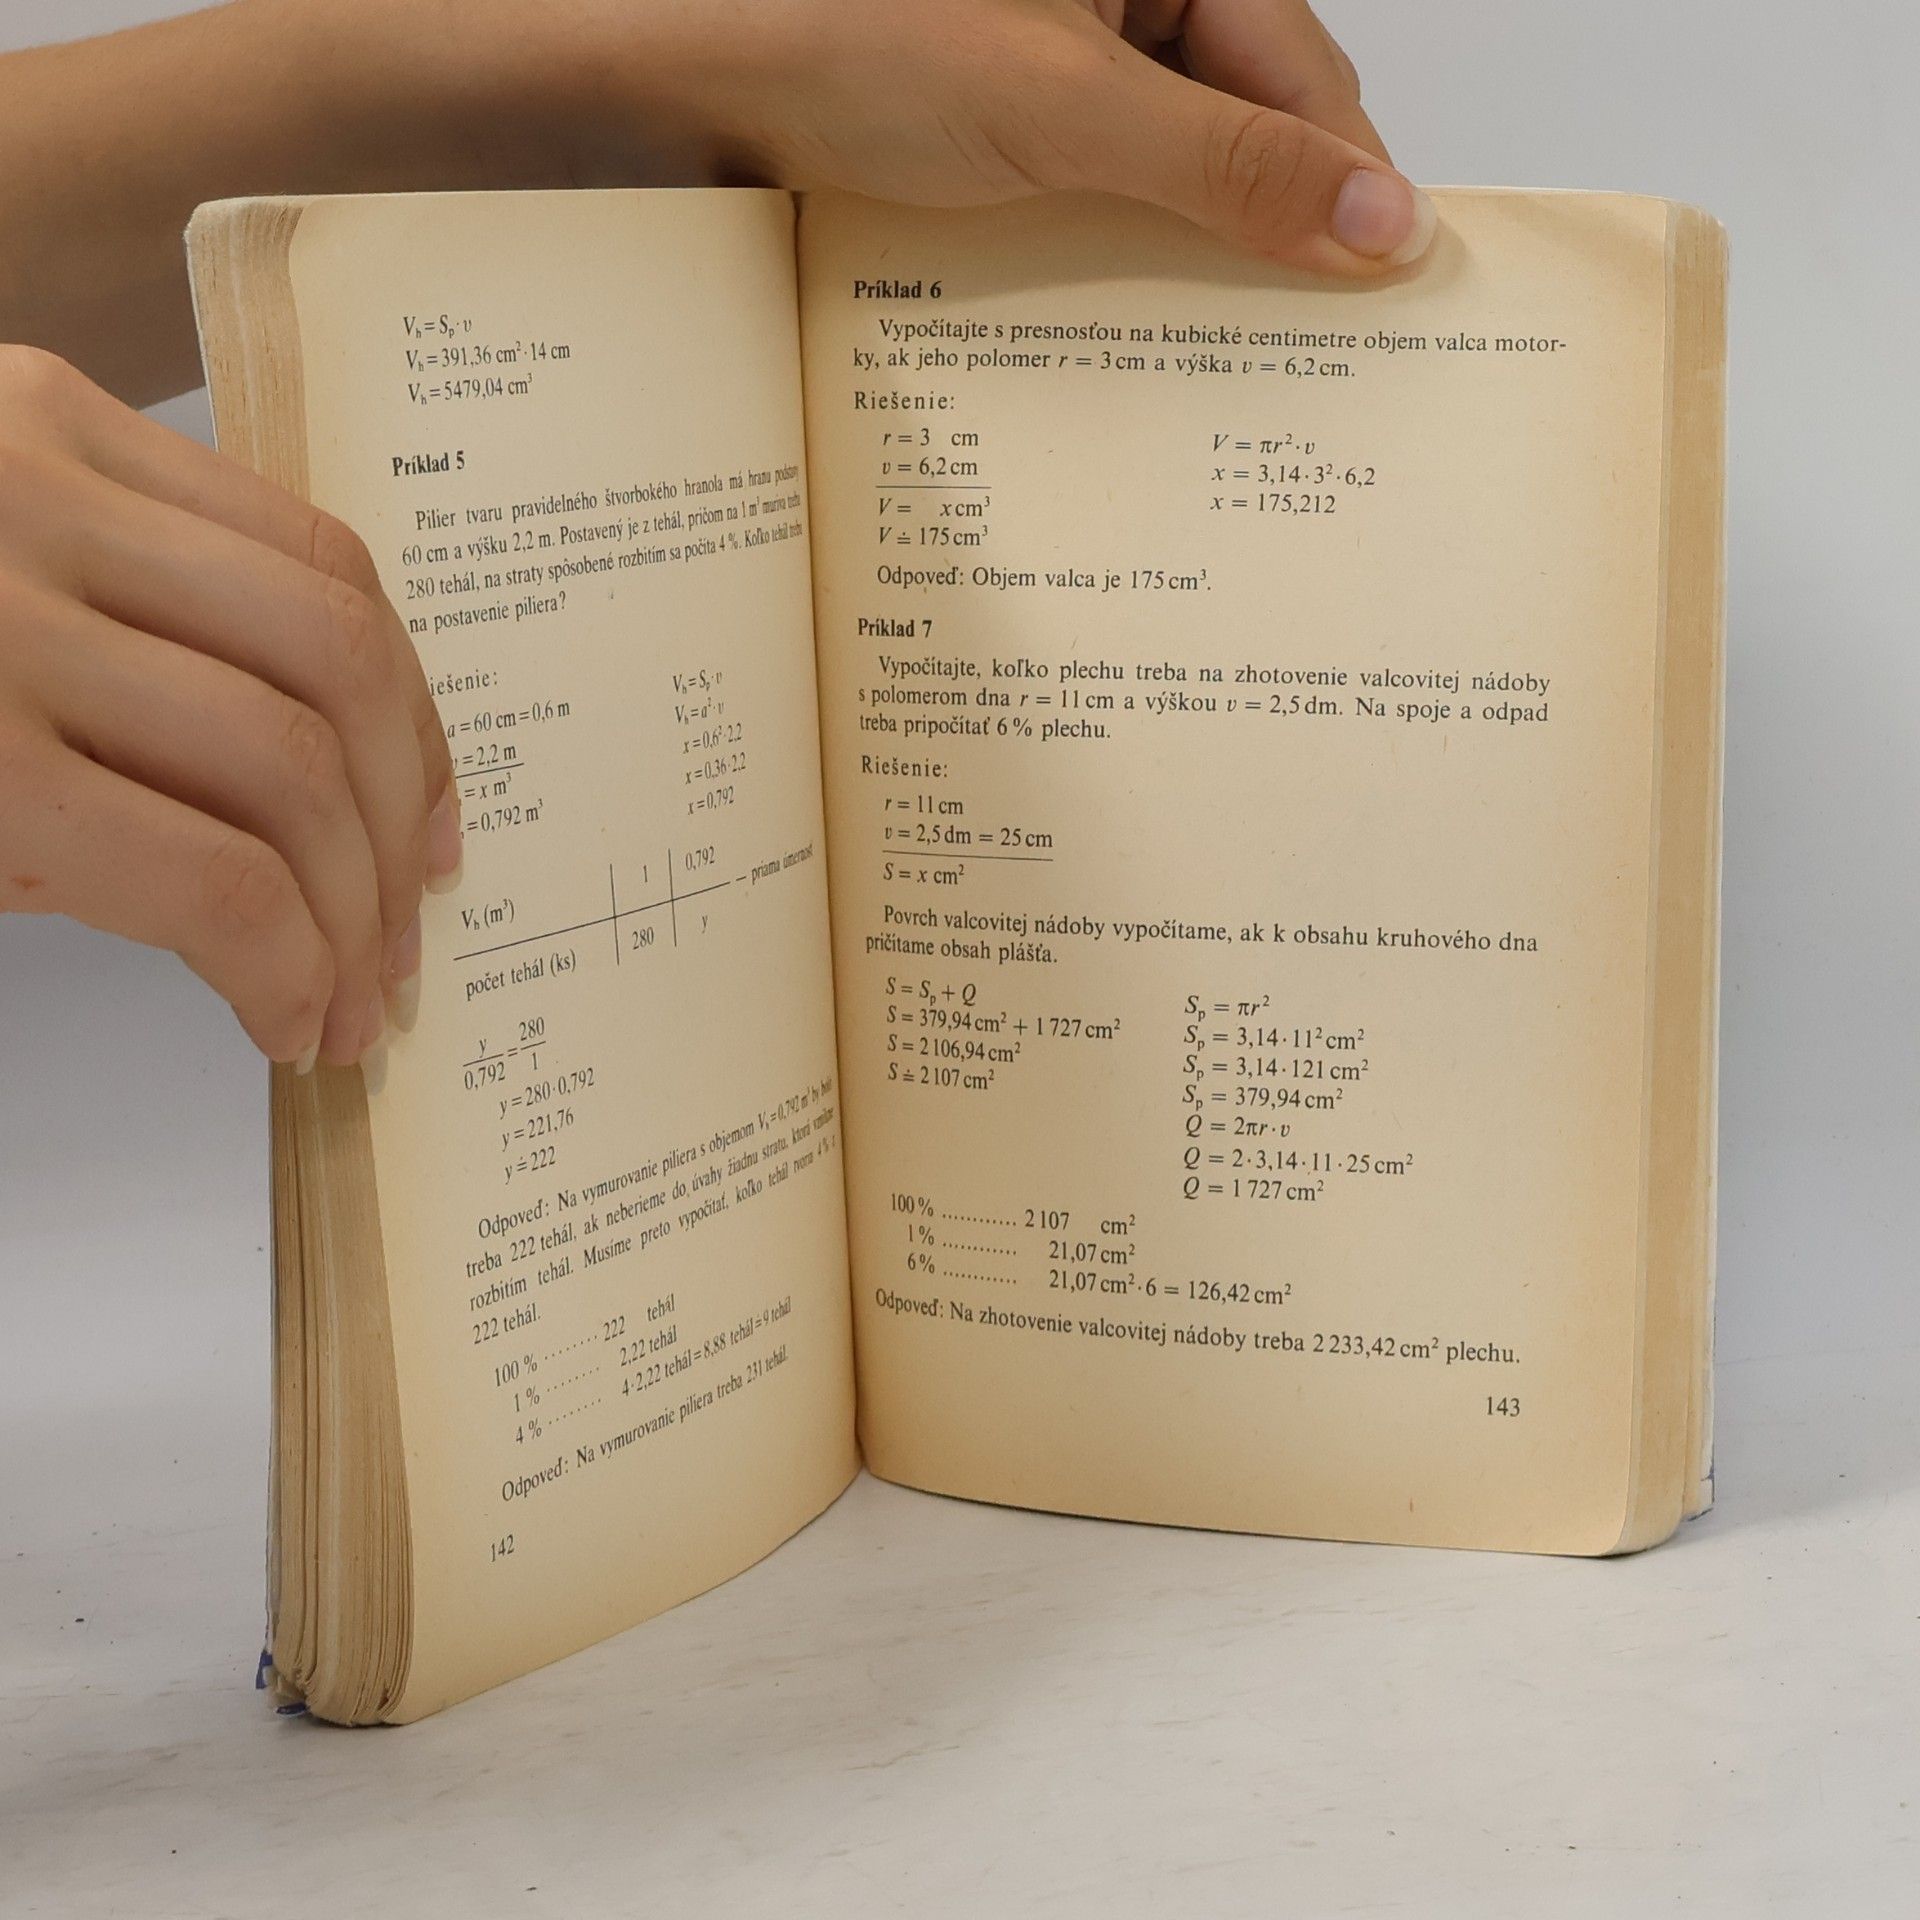 V_h = S_p · v
V_h = 391,36 cm² · 14 cm
V_h = 5479,04 cm³
Príklad 5
Pilier tvaru pravidelného štvorbokého hranola má hranu podstavy
60 cm a výšku 2,2 m. Postavený je z tehál, pričom na 1 m³ muriva treba
280 tehál, na straty spôsobené rozbitím sa počíta 4 %. Koľko tehál treba
na postavenie piliera?
iešenie:
a = 60 cm = 0,6 m
= 2,2 m
= x m³
= 0,792 m³
V_h = S_p · v
V_h = a² · v
x = 0,6² · 2,2
x = 0,36 · 2,2
x = 0,792
V_h (m³) 1 0,792 — priama úmernosť
počet tehál (ks) 280 y
y/0,792 = 280/1
y = 280 · 0,792
y = 221,76
y ≐ 222
Odpoveď: Na vymurovanie piliera s objemom V_h = 0,792 m³ by bolo
treba 222 tehál, ak neberieme do úvahy žiadnu stratu, ktorá vznikne
rozbitím tehál. Musíme preto vypočítať, koľko tehál tvoria 4 % z
222 tehál.
100 % ........ 222 tehál
1 % ........ 2,22 tehál
4 % ........ 4 · 2,22 tehál = 8,88 tehál ≐ 9 tehál
Odpoveď: Na vymurovanie piliera treba 231 tehál.
142
Príklad 6
Vypočítajte s presnosťou na kubické centimetre objem valca motor-
ky, ak jeho polomer r = 3 cm a výška v = 6,2 cm.
Riešenie:
r = 3 cm
v = 6,2 cm
V = x cm³
V ≐ 175 cm³
V = πr² · v
x = 3,14 · 3² · 6,2
x = 175,212
Odpoveď: Objem valca je 175 cm³.
Príklad 7
Vypočítajte, koľko plechu treba na zhotovenie valcovitej nádoby
s polomerom dna r = 11 cm a výškou v = 2,5 dm. Na spoje a odpad
treba pripočítať 6 % plechu.
Riešenie:
r = 11 cm
v = 2,5 dm = 25 cm
S = x cm²
Povrch valcovitej nádoby vypočítame, ak k obsahu kruhového dna
pričítame obsah plášťa.
S = S_p + Q
S = 379,94 cm² + 1 727 cm²
S = 2 106,94 cm²
S ≐ 2 107 cm²
S_p = πr²
S_p = 3,14 · 11² cm²
S_p = 3,14 · 121 cm²
S_p = 379,94 cm²
Q = 2πr · v
Q = 2 · 3,14 · 11 · 25 cm²
Q = 1 727 cm²
100 % ............ 2 107 cm²
1 % ............ 21,07 cm²
6 % ............ 21,07 cm² · 6 = 126,42 cm²
Odpoveď: Na zhotovenie valcovitej nádoby treba 2 233,42 cm² plechu.
143